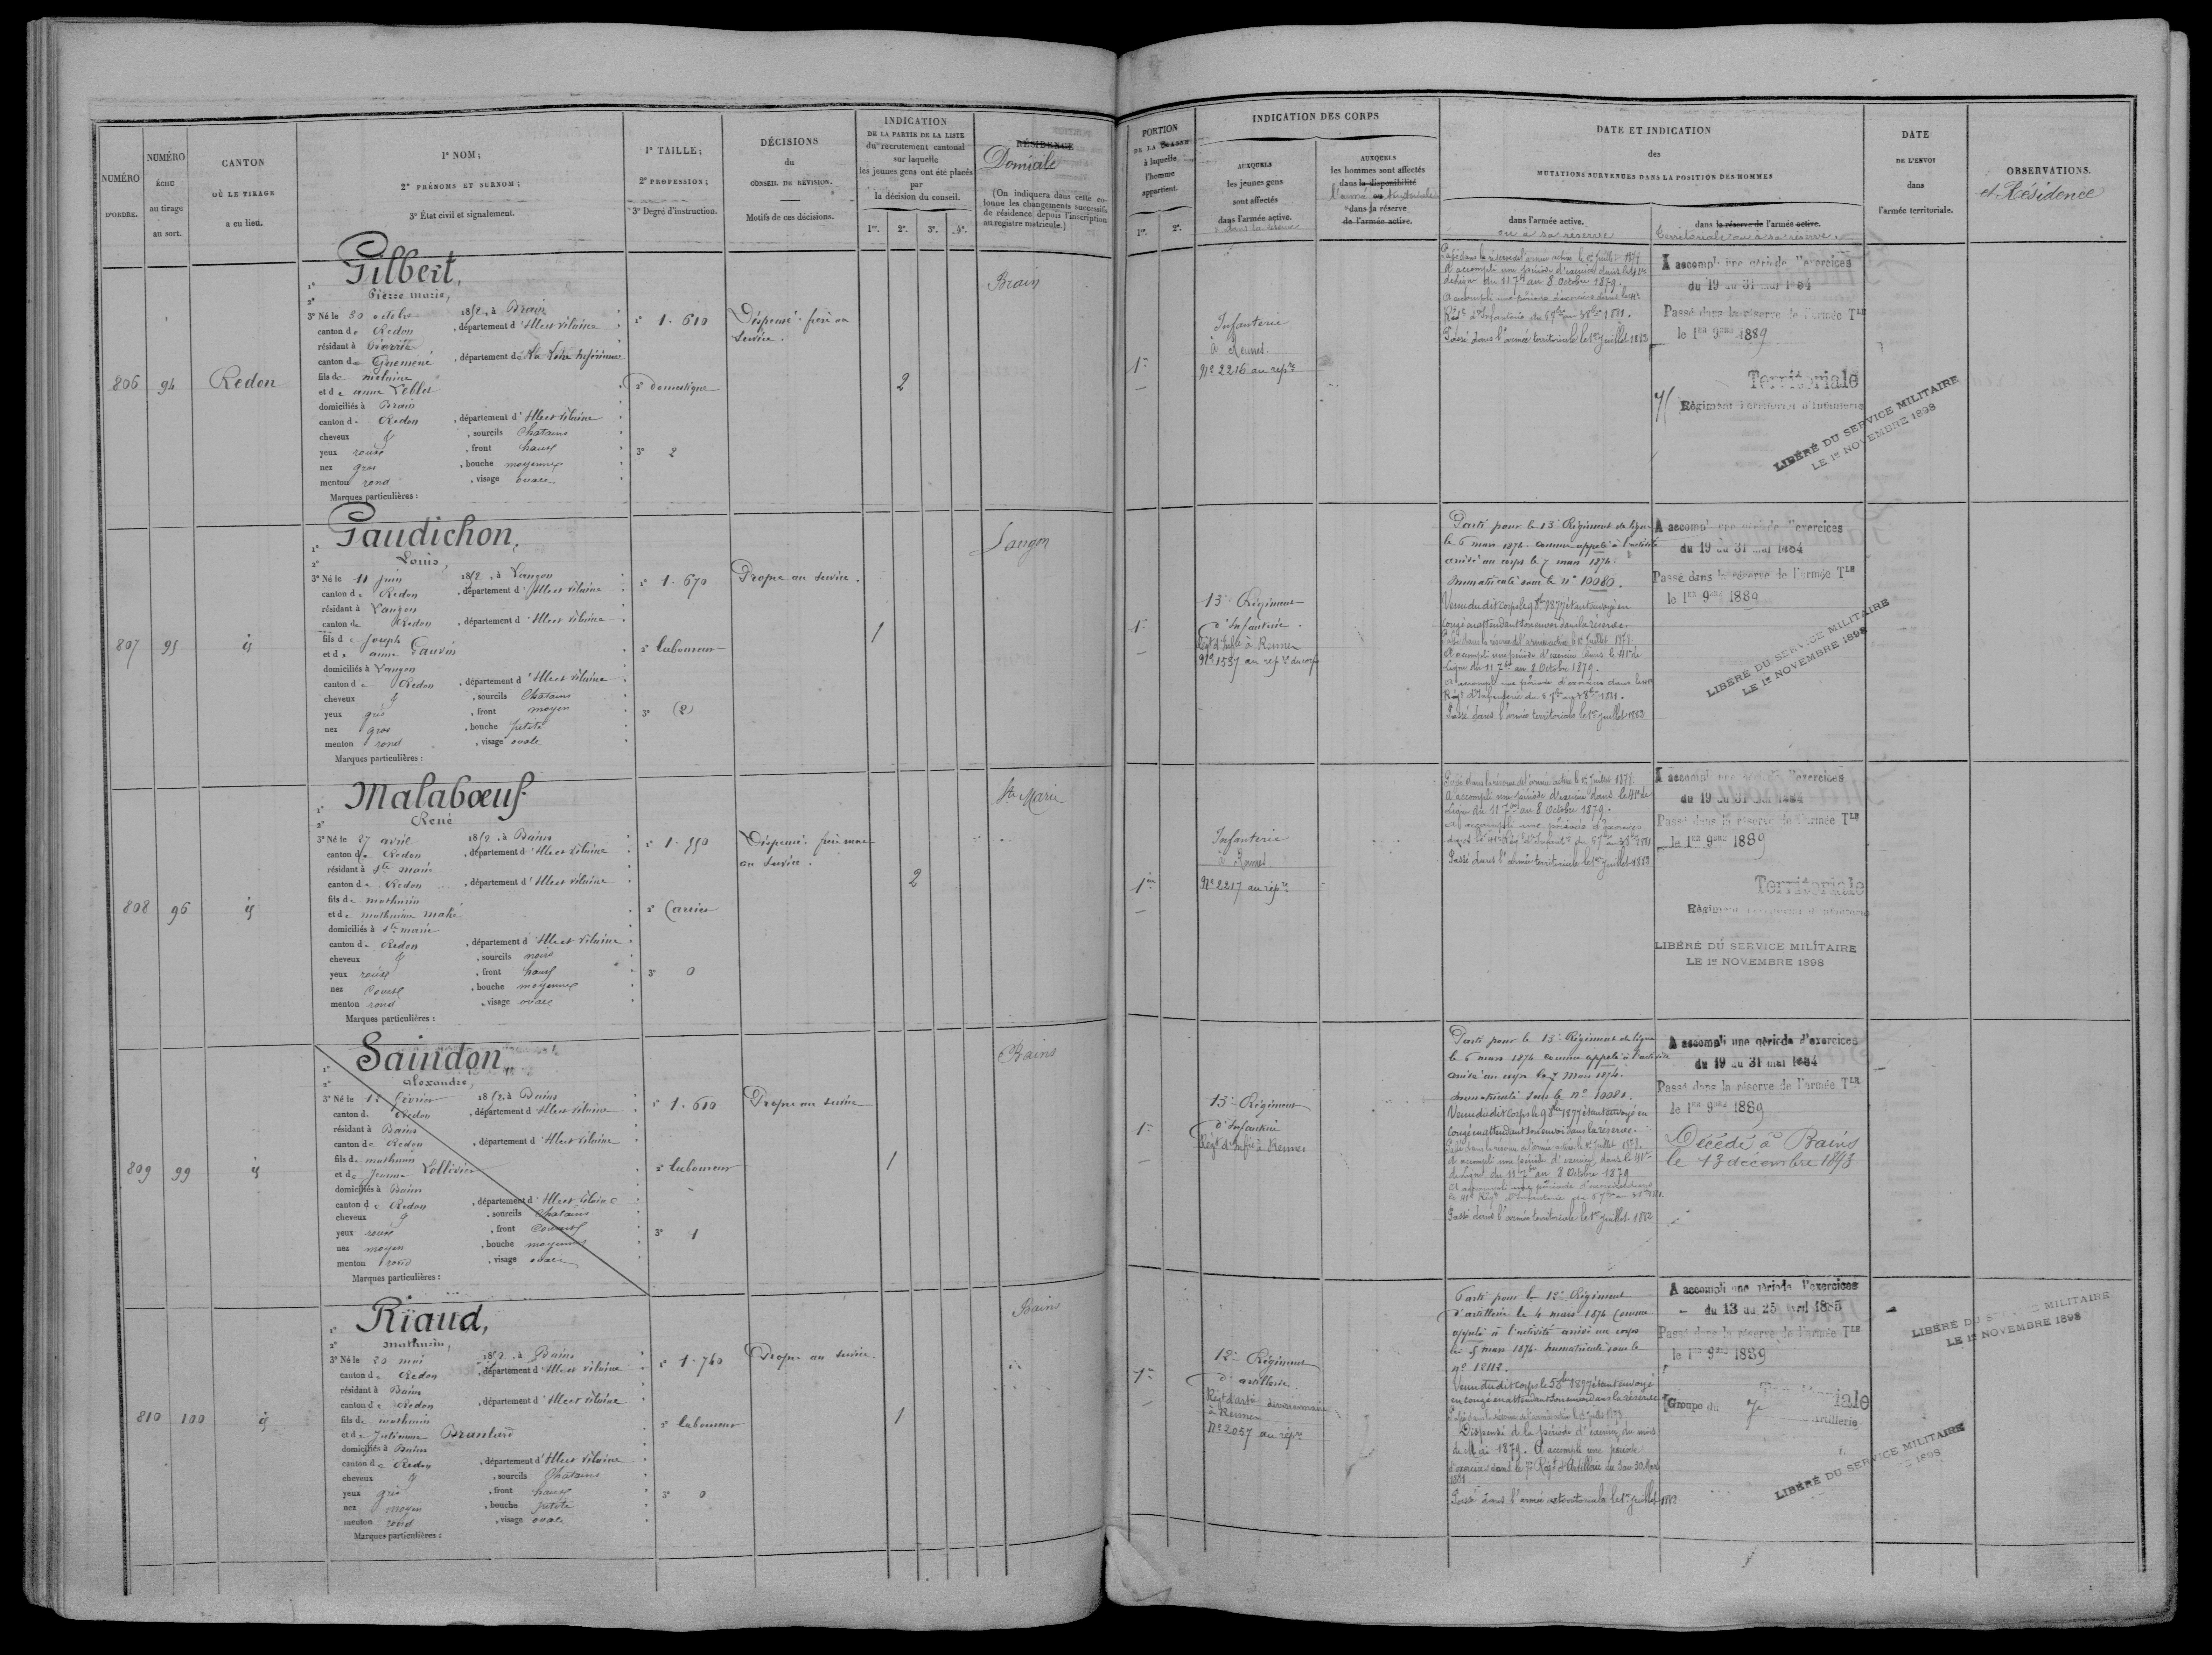 NUMÉRO D'ORDRE.
NUMÉRO ÉCHU au tirage au sort.
CANTON OÙ LE TIRAGE a eu lieu.
1° NOM;
2° PRÉNOMS ET SURNOM;
3° État civil et signalement.
1° TAILLE;
2° PROFESSION;
3° Degré d'instruction.
DÉCISIONS
du
CONSEIL DE RÉVISION.
Motifs de ces décisions.
INDICATION
DE LA PARTIE DE LA LISTE
du recrutement cantonal
sur laquelle
les jeunes gens ont été placés
par
la décision du conseil.
1re. 2e. 3e. 4e.
RÉSIDENCE
Domicile
(On indiquera dans cette co-
lonne les changements successifs
de résidence depuis l'inscription
au registre matricule.)
PORTION
DE LA CLASSE
à laquelle
l'homme
appartient.
1re. 2e.
INDICATION DES CORPS
AUXQUELS
les jeunes gens
sont affectés
dans l'armée active.
AUXQUELS
les hommes sont affectés
dans la disponibilité
dans la réserve
de l'armée active.
DATE ET INDICATION
des
MUTATIONS SURVENUES DANS LA POSITION DES HOMMES
dans l'armée active.
ou à sa réserve
dans la réserve de l'armée active.
Territoriale ou à sa réserve.
DATE
DE L'ENVOI
dans
l'armée territoriale.
OBSERVATIONS.
et Résidence
806
94
Redon
1° Gilbert,
2° Pierre marie,
3° Né le 30 octobre 1852, à Brain
canton de Redon, département d'Ille et Vilaine
résidant à Pierric
canton de Guéméné, département de la Loire Inférieure
fils de
et de anne
domiciliés à Brain
canton de Redon, département d'Ille et Vilaine
cheveux &, sourcils Chatains
yeux roux, front haut
nez gros, bouche moyenne
menton rond, visage ovale
Marques particulières :
1° 1.610
2° domestique
3° 2
Dispensé. frère au
service.
2
Brain
1re
Infanterie
à Rennes.
N° 2216 au repre
Passé dans la réserve de l'armée active le 1er Juillet 1877
A accompli une période d'exercice dans le 41e
de ligne du 11 7bre au 8 Octobre 1879.
A accompli une période d'exercices dans le 41e
Régt d'Infanterie du 5 7bre au 3 8bre 1881.
Passé dans l'armée territoriale le 1er Juillet 1882
A accompli une période d'exercices
du 19 au 31 mai 1884
Passé dans la réserve de l'armée Tle
le 1er 9bre 1889
Territoriale
Régiment Territorial d'Infanterie
LIBÉRÉ DU SERVICE MILITAIRE
LE 1er NOVEMBRE 1898
807
95
id
1° Gaudichon,
2° Louis,
3° Né le 11 juin 1852, à Langon
canton de Redon, département d'Ille et Vilaine
résidant à Langon
canton de Redon, département d'Ille et Vilaine
fils de Joseph
et de anne Gauvin
domiciliés à Langon
canton de Redon, département d'Ille et Vilaine
cheveux &, sourcils Chatains
yeux gris, front moyen
nez gros, bouche petite
menton rond, visage ovale
Marques particulières :
1° 1.670
2° laboureur
3° (2)
Propre au service.
1
Langon
1re
13e Régiment
d'Infanterie.
Régt d'Infie à Rennes
N° 1537 au rep re du corps
Parti pour le 13e Régiment de ligne
le 6 mars 1874. comme appelé à l'activité
arrivé au corps le 7 mars 1874.
Immatriculé sous le n° 10080.
Venu dudit corps le 9 8bre 1877 étant envoyé en
congé en attendant son envoi dans la réserve.
Passé dans la réserve de l'armée active le 1er Juillet 1878.
A accompli une période d'exercice dans le 41e de
Ligne du 11 7bre au 8 Octobre 1879.
A accompli une période d'exercices dans le 41e
Régt d'Infanterie du 5 7bre au 3 8bre 1881.
Passé dans l'armée territoriale le 1er Juillet 1882
A accompli une période d'exercices
du 19 au 31 mai 1884
Passé dans la réserve de l'armée Tle
le 1er 9bre 1889
LIBÉRÉ DU SERVICE MILITAIRE
LE 1er NOVEMBRE 1898
808
96
id
1° Malabœuf
2° René
3° Né le 27 avril 1852, à Bains
canton de Redon, département d'Ille et Vilaine
résidant à Ste marie
canton de Redon, département d'Ille et Vilaine
fils de mathurin
et de mathurine mahé
domiciliés à Ste marie
canton de Redon, département d'Ille et Vilaine
cheveux &, sourcils noirs
yeux roux, front haut
nez Court, bouche moyenne
menton rond, visage ovale
Marques particulières :
1° 1.550
2° Carrier
3° 0
Dispensé. frère mort
au service.
2
Ste Marie
1re
Infanterie
à Rennes
N° 2217 au repre
Passé dans la réserve de l'armée active le 1er Juillet 1877
A accompli une période d'exercice dans le 41e de
Ligne du 11 7bre au 8 Octobre 1879.
A accompli une période d'exercices
dans le 41e Régt d'Infanterie du 5 7bre au 3 8bre 1881
Passé dans l'armée territoriale le 1er Juillet 1882
A accompli une période d'exercices
du 19 au 31 mai 1884
Passé dans la réserve de l'armée Tle
le 1er 9bre 1889
Territoriale
LIBÉRÉ DU SERVICE MILITAIRE
LE 1er NOVEMBRE 1898
809
99
id
1° Saindon,
2° alexandre,
3° Né le février 1852, à Bains
canton de Redon, département d'Ille et Vilaine
résidant à Bains
canton de Redon, département d'Ille et Vilaine
fils de mathurin
et de Jeanne Lollivier
domiciliés à Bains
canton de Redon, département d'Ille et Vilaine
cheveux &, sourcils Chatains
yeux roux, front Couvert
nez moyen, bouche moyenne
menton rond, visage ovale
Marques particulières :
1° 1.610
2° laboureur
3° 1
Propre au service
1
Bains
1re
13e Régiment
d'Infanterie
Régt d'Infie à Rennes
Parti pour le 13e Régiment de ligne
le 6 mars 1874 comme appelé à l'activité
arrivé au corps le 7 Mars 1874.
Immatriculé sous le n° 10081.
Venu dudit corps le 9 8bre 1877 étant envoyé en
congé en attendant son envoi dans la réserve.
Passé dans la réserve de l'armée active le 1er Juillet 1878.
A accompli une période d'exercice dans le 41e
de Ligne du 11 7bre au 8 Octobre 1879
A accompli une période d'exercices dans
le 41e Régt d'Infanterie du 5 7bre au 3 8bre 1881.
Passé dans l'armée territoriale le 1er Juillet 1882
A accompli une période d'exercices
du 19 au 31 mai 1884
Passé dans la réserve de l'armée Tle
le 1er 9bre 1889
Décédé à Bains
le 13 décembre 1893
810
100
id
1° Riaud,
2° mathurin,
3° Né le 20 mai 1852, à Bains
canton de Redon, département d'Ille et Vilaine
résidant à Bains
canton de Redon, département d'Ille et Vilaine
fils de mathurin
et de Julienne
domiciliés à Bains
canton de Redon, département d'Ille et Vilaine
cheveux &, sourcils Chatains
yeux gris, front haut
nez moyen, bouche petite
menton rond, visage ovale
Marques particulières :
1° 1.740
2° laboureur
3° 0
Propre au service.
1
Bains
1re
12e Régiment
d'artillerie.
Régt d'artie divisionnaire
à Rennes
N° 2057 au repre
Parti pour le 12e Régiment
d'artillerie le 4 mars 1874 Comme
appelé à l'activité arrivé au corps
le 5 mars 1874 Immatriculé sous le
n° 12112.
Venu dudit corps le étant envoyé
en congé en attendant son envoi dans la réserve
Passé dans la réserve de l'armée active le 1er Juillet 1878
Dispensé de la période d'exercice du mois
de Mai 1879. A accompli une période
d'exercices dans le 7e Régt d'Artillerie du 3 au 30 Mars
1881
Passé dans l'armée territoriale le 1er Juillet 1882
A accompli une période d'exercices
du 13 au 25 avril 1885
Passé dans la réserve de l'armée Tle
le 1er 9bre 1889
Territoriale
Groupe du 7e Artillerie
LIBÉRÉ DU SERVICE MILITAIRE
1898
LIBÉRÉ DU SERVICE MILITAIRE
LE 1er NOVEMBRE 1898